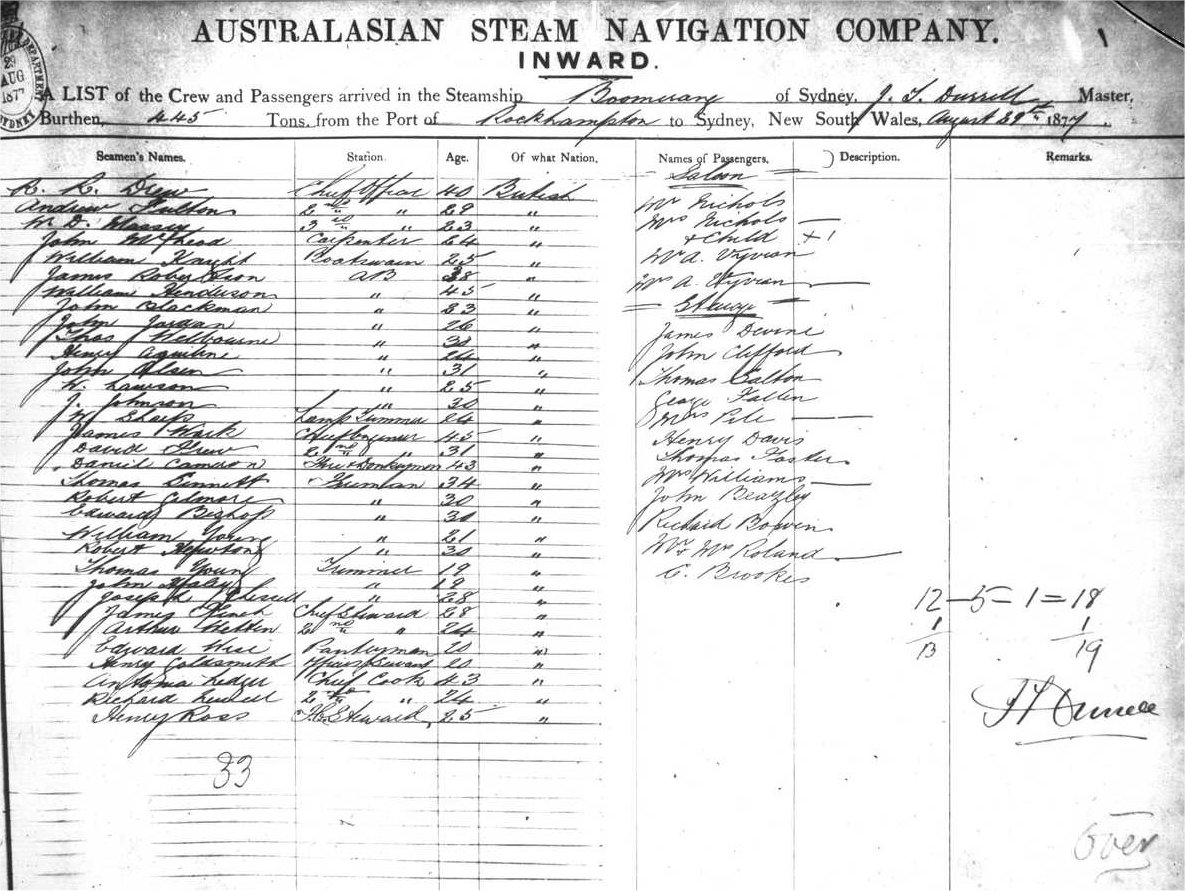 AUSTRALASIAN STEAM NAVIGATION COMPANY.
INWARD.
29 AUG 1877
DEPARTMENT
SYDNEY
A LIST of the Crew and Passengers arrived in the Steamship Boomerang of Sydney, J. L. Durrell Master,
Burthen, 445 Tons, from the Port of Rockhampton to Sydney, New South Wales, August 29th 1877
Seamen's Names. Station. Age. Of what Nation. Names of Passengers. Description. Remarks.
Saloon
R. R. Drew Chief Officer 40 British
Mr Nichols
Andrew Fulton 2nd " 29 "
W. D. Massey 3rd " 23 "
Mrs Nichols
John Carpenter 64 "
+ Child +1
William Knight Boatswain 25 "
Mr A. Vyvian
James AB 38 "
Mrs A. Vyvian
William Henderson " 45 "
Steerage
John Blackman " 23 "
John Jordan " 26 "
James Devine
Thos Welbourne " 30 "
Henry Aquiline " 24 "
John Clifford
John Olsen " 31 "
Thomas Salton
W. Lawson " 25 "
George Fallen
J. Johnson " 30 "
W. Sharp Lamp Trimmer 24 "
Mrs Pile
James Wark Chief Engineer 45 "
Henry Davis
David Grew 2nd " 31 "
Thomas Foster
Daniel Camdon Donkeyman 43 "
Mrs Williams
Thomas Dinnett Fireman 34 "
John Beazley
Robert Gilmore " 30 "
Edward Bishop " 30 "
Richard Bowen
William Young " 21 "
Robert Hewtong " 30 "
Mr + Mrs Roland
Thomas Young Trimmer 19 "
C. Brookes
John Haly " 19 "
Joseph " 28 "
12 – 5 = 1 = 18
James Finch Chief Steward 28 "
1 1
Arthur 2nd " 24 "
13 19
Edward Wise Pantryman 20 "
Henry Goldsmith Officers Servant 20 "
Antonia Ledger Chief Cook 43 "
Richard Newell 2nd " 24 "
Henry Ross F.C. Steward 25 "
J L Durrell
33
Over